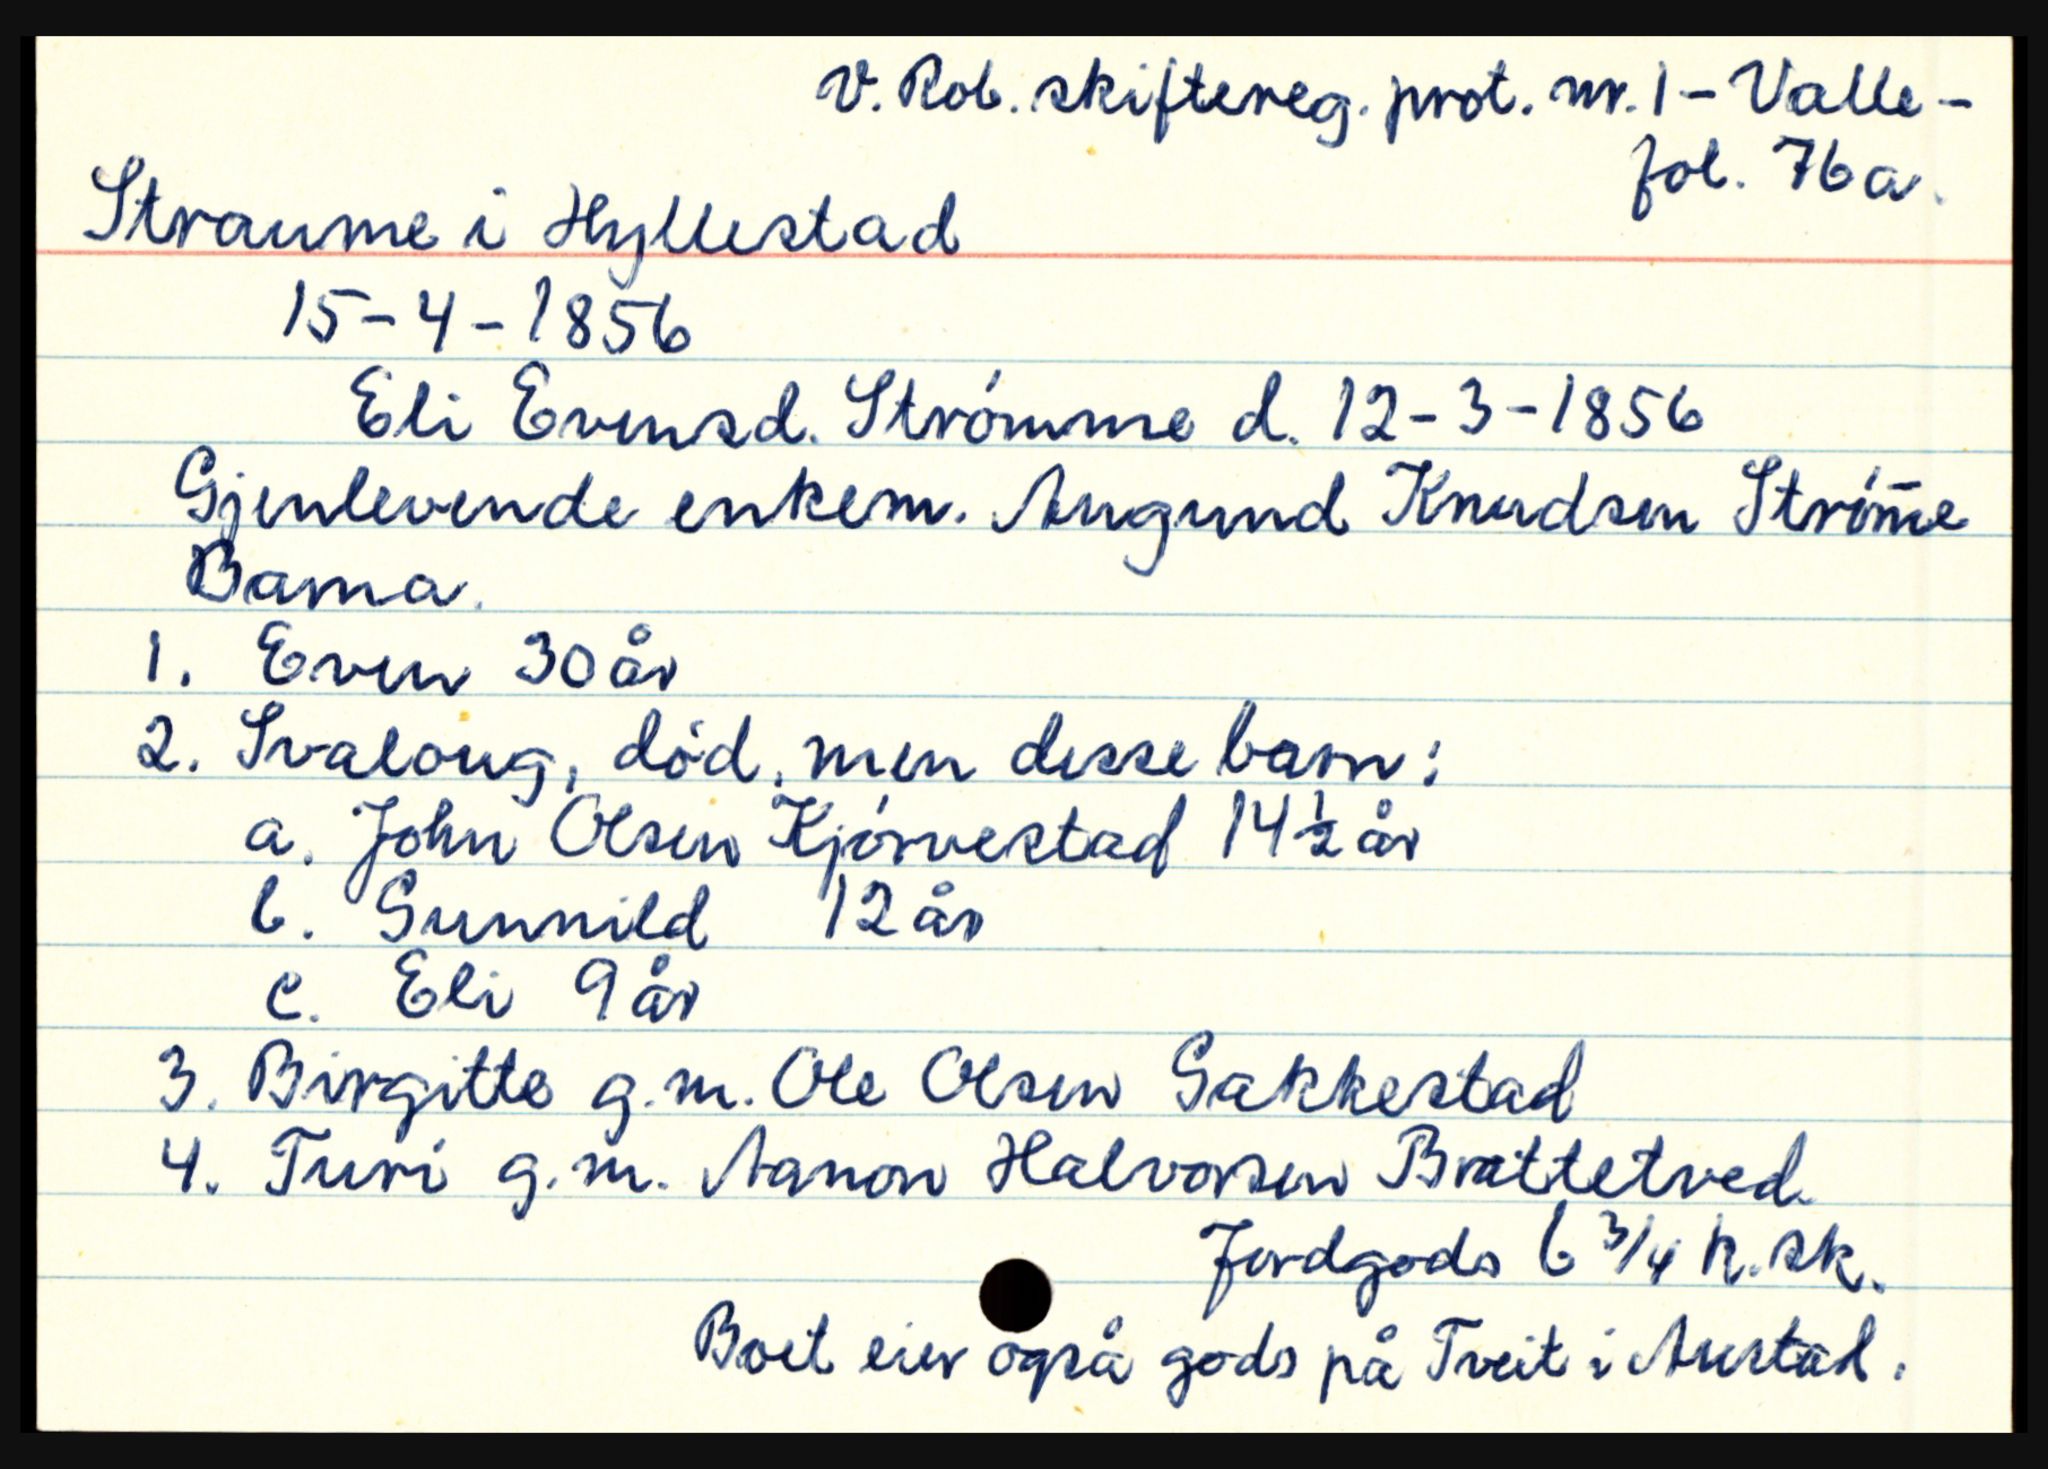 V. Rob. skiftereg. prot. nr. 1 - Valle -
fol. 76a.
Straume i Hyllestad
15-4-1856
Eli Evensd. Strømme d. 12-3-1856
Gjenlevende enkem. Augund Knudsen Strøm̄e
Barna.
1. Even 30 år
2. Svaloug, død, men disse barn:
a. John Olsen Kjørvestad 14 1/2 år
b. Gunnild 12 år
c. Eli 9 år
3. Birgitte g.m. Ole Olsen Gakkestad
4. Turi g.m. Aanon Halvorsen Brattetved.
Jordgods 6 3/4 h. sk.
Boet eier også gods på Tveit i Austad.